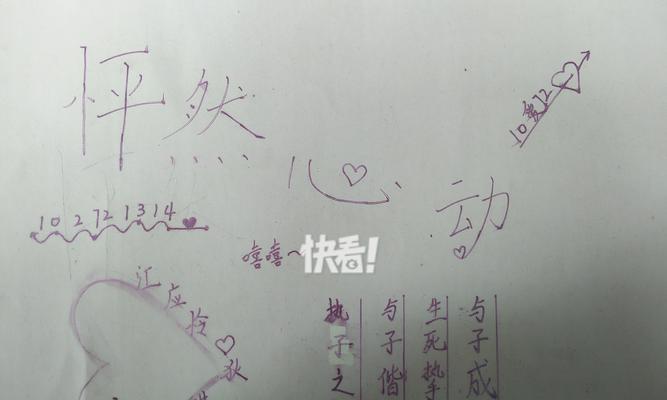 怦然心动
10爱12
10 2 72 1314
嘻嘻~
快看!
江应怜♡狄
与子成
生死挚
与子偕
执子之